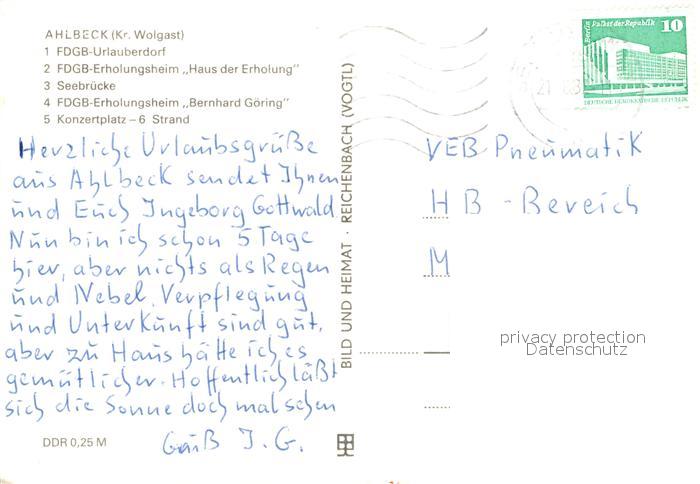 AHLBECK (Kr. Wolgast)
1 FDGB-Urlauberdorf
2 FDGB-Erholungsheim „Haus der Erholung"
3 Seebrücke
4 FDGB-Erholungsheim „Bernhard Göring"
5 Konzertplatz – 6 Strand
Herzliche Urlaubsgrüße
aus Ahlbeck sendet Ihnen
und Euch Ingeborg Gottwald
Nun bin ich schon 5 Tage
hier, aber nichts als Regen
und Nebel. Verpflegung
und Unterkunft sind gut,
aber zu Haus hätte ich es
gemütlicher. Hoffentlich läßt
sich die Sonne doch mal sehen
Gruß I. G.
DDR 0,25 M
BILD UND HEIMAT · REICHENBACH (VOGTL)
Berlin Palast der Republik
10
DEUTSCHE DEMOKRATISCHE REPUBLIK
VEB Pneumatik
HB - Bereich
M
privacy protection
Datenschutz